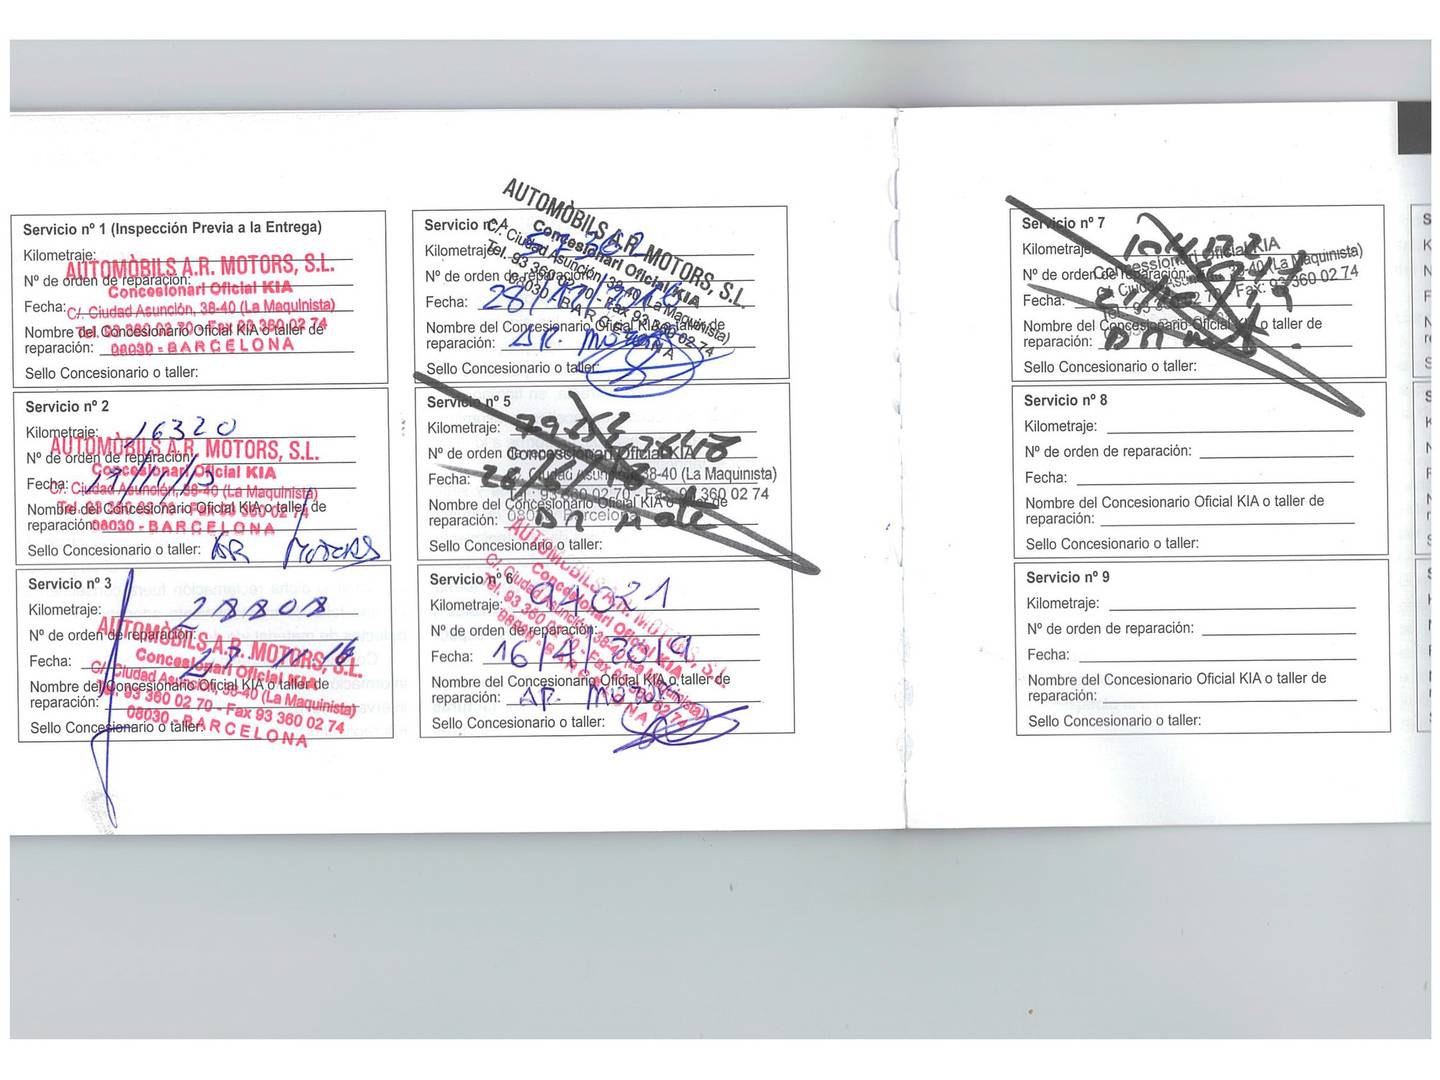 Servicio nº 1 (Inspección Previa a la Entrega)
Kilometraje:
AUTOMÒBILS A.R. MOTORS, S.L.
Nº de orden de reparación:
Concesionari Oficial KIA
Fecha:
C/. Ciudad Asunción, 38-40 (La Maquinista)
Tel. 93 360 02 70 - Fax 93 360 02 74
Nombre del Concesionario Oficial KIA o taller de
reparación:
08030 - BARCELONA
Sello Concesionario o taller:
Servicio nº 2
Kilometraje: 16320
AUTOMÒBILS A.R. MOTORS, S.L.
Nº de orden de reparación:
Concesionari Oficial KIA
Fecha:
C/. Ciudad Asunción, 38-40 (La Maquinista)
Tel. 93 360 02 70 - Fax 93 360 02 74
Nombre del Concesionario Oficial KIA o taller de
reparación:
08030 - BARCELONA
Sello Concesionario o taller: AR MOTORS
Servicio nº 3
Kilometraje: 28808
Nº de orden de reparación:
AUTOMÒBILS A.R. MOTORS, S.L.
Concesionari Oficial KIA
Fecha:
C/. Ciudad Asunción, 38-40 (La Maquinista)
Nombre del Concesionario Oficial KIA o taller de
Tel. 93 360 02 70 - Fax 93 360 02 74
reparación:
08030 - BARCELONA
Sello Concesionario o taller:
AUTOMÒBILS A.R. MOTORS, S.L.
Concesionari Oficial KIA
C/. Ciudad Asunción, 38-40 (La Maquinista)
Tel. 93 360 02 70 - Fax 93 360 02 74
08030 - BARCELONA
Servicio nº
Kilometraje:
Nº de orden de reparación:
Fecha:
Nombre del Concesionario Oficial KIA o taller de
reparación: AR. MOTORS
Sello Concesionario o taller:
Servicio nº 5
Kilometraje:
Nº de orden de reparación:
Concesionari Oficial KIA
Fecha:
Ciudad Asunción, 38-40 (La Maquinista)
93 360 02 70 - Fax 93 360 02 74
Nombre del Concesionario Oficial KIA o taller de
reparación:
Barcelona
Sello Concesionario o taller:
Servicio nº 6
AUTOMÒBILS A.R. MOTORS, S.L.
Concesionari Oficial KIA
C/. Ciudad Asunción, 38-40 (La Maquinista)
Tel. 93 360 02 70 - Fax 93 360 02 74
08030 - BARCELONA
Kilometraje: 94021
Nº de orden de reparación:
Fecha: 16/4/2019
Nombre del Concesionario Oficial KIA o taller de
reparación: AR. MOTORS
Sello Concesionario o taller:
Servicio nº 7
Kilometraje:
Concessionari Oficial KIA
Nº de orden de reparación:
C/ Ciudad Asunción, 38-40 (La Maquinista)
Fecha:
Tel. 93 360 02 70 / Fax: 93 360 02 74
Nombre del Concesionario Oficial KIA o taller de
reparación:
Sello Concesionario o taller:
Servicio nº 8
Kilometraje:
Nº de orden de reparación:
Fecha:
Nombre del Concesionario Oficial KIA o taller de
reparación:
Sello Concesionario o taller:
Servicio nº 9
Kilometraje:
Nº de orden de reparación:
Fecha:
Nombre del Concesionario Oficial KIA o taller de
reparación:
Sello Concesionario o taller: